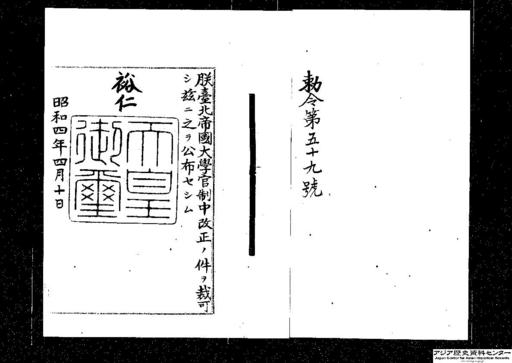 勅令第五十九號
朕臺北帝國大學官制中改正ノ件ヲ裁可
シ茲ニ之ヲ公布セシム
裕仁
天皇
御璽
昭和四年四月十日
アジア歴史資料センター
Japan Center for Asian Historical Records